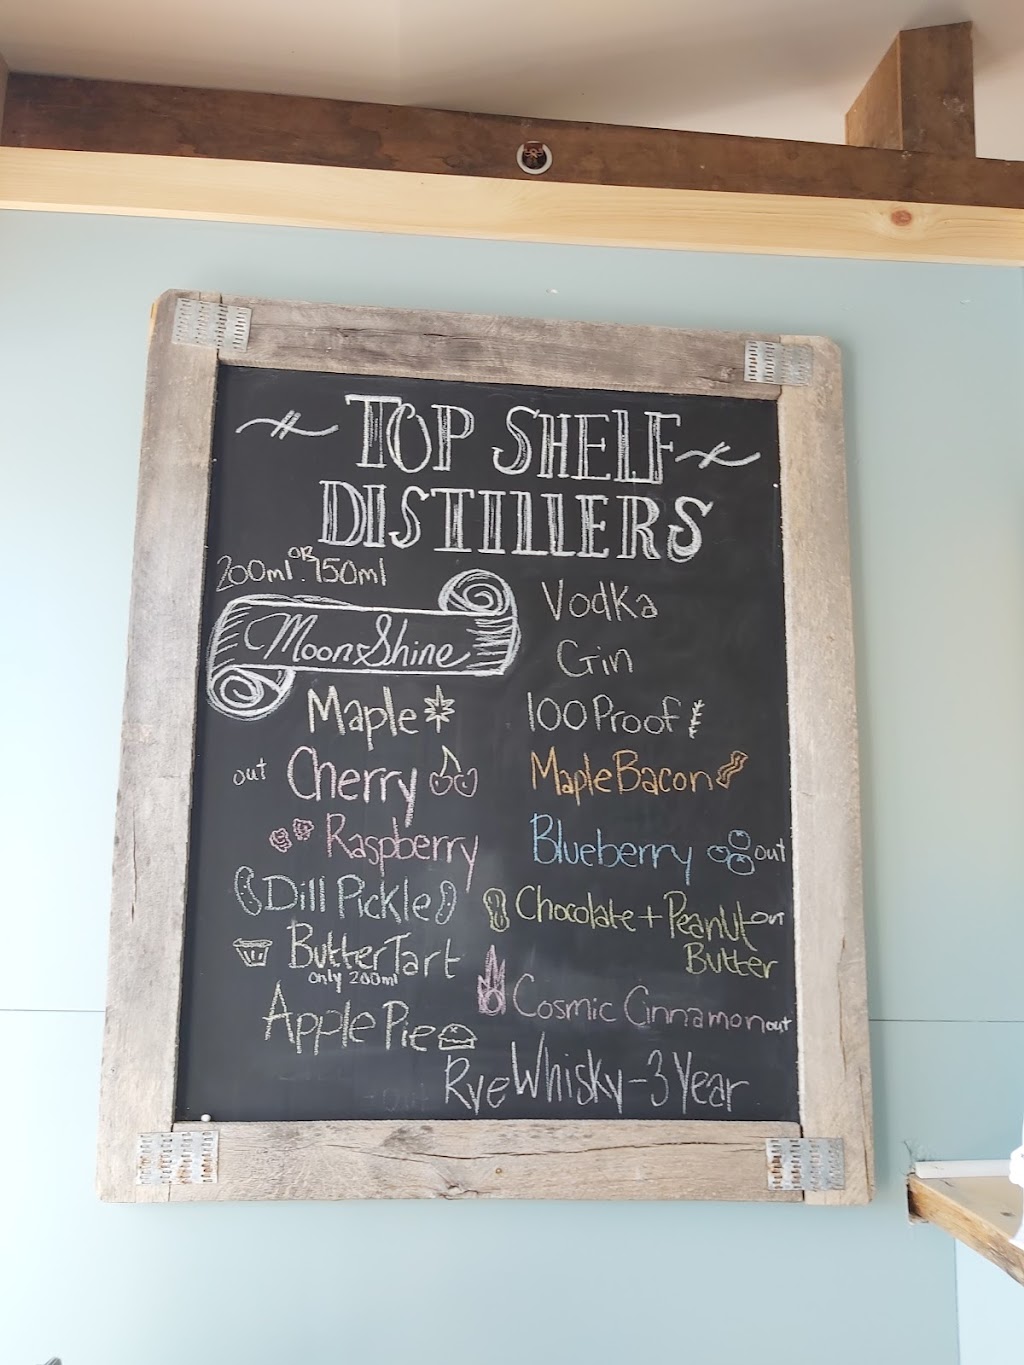 TOP SHELF
DISTILLERS
200ml OR 750ml
MoonShine
Maple
out Cherry
Raspberry
Dill Pickle
Butter Tart
only 200ml
Apple Pie
Vodka
Gin
100 Proof
Maple Bacon
Blueberry out
Chocolate + Peanut out
Butter
Cosmic Cinnamon out
Rye Whisky - 3 Year